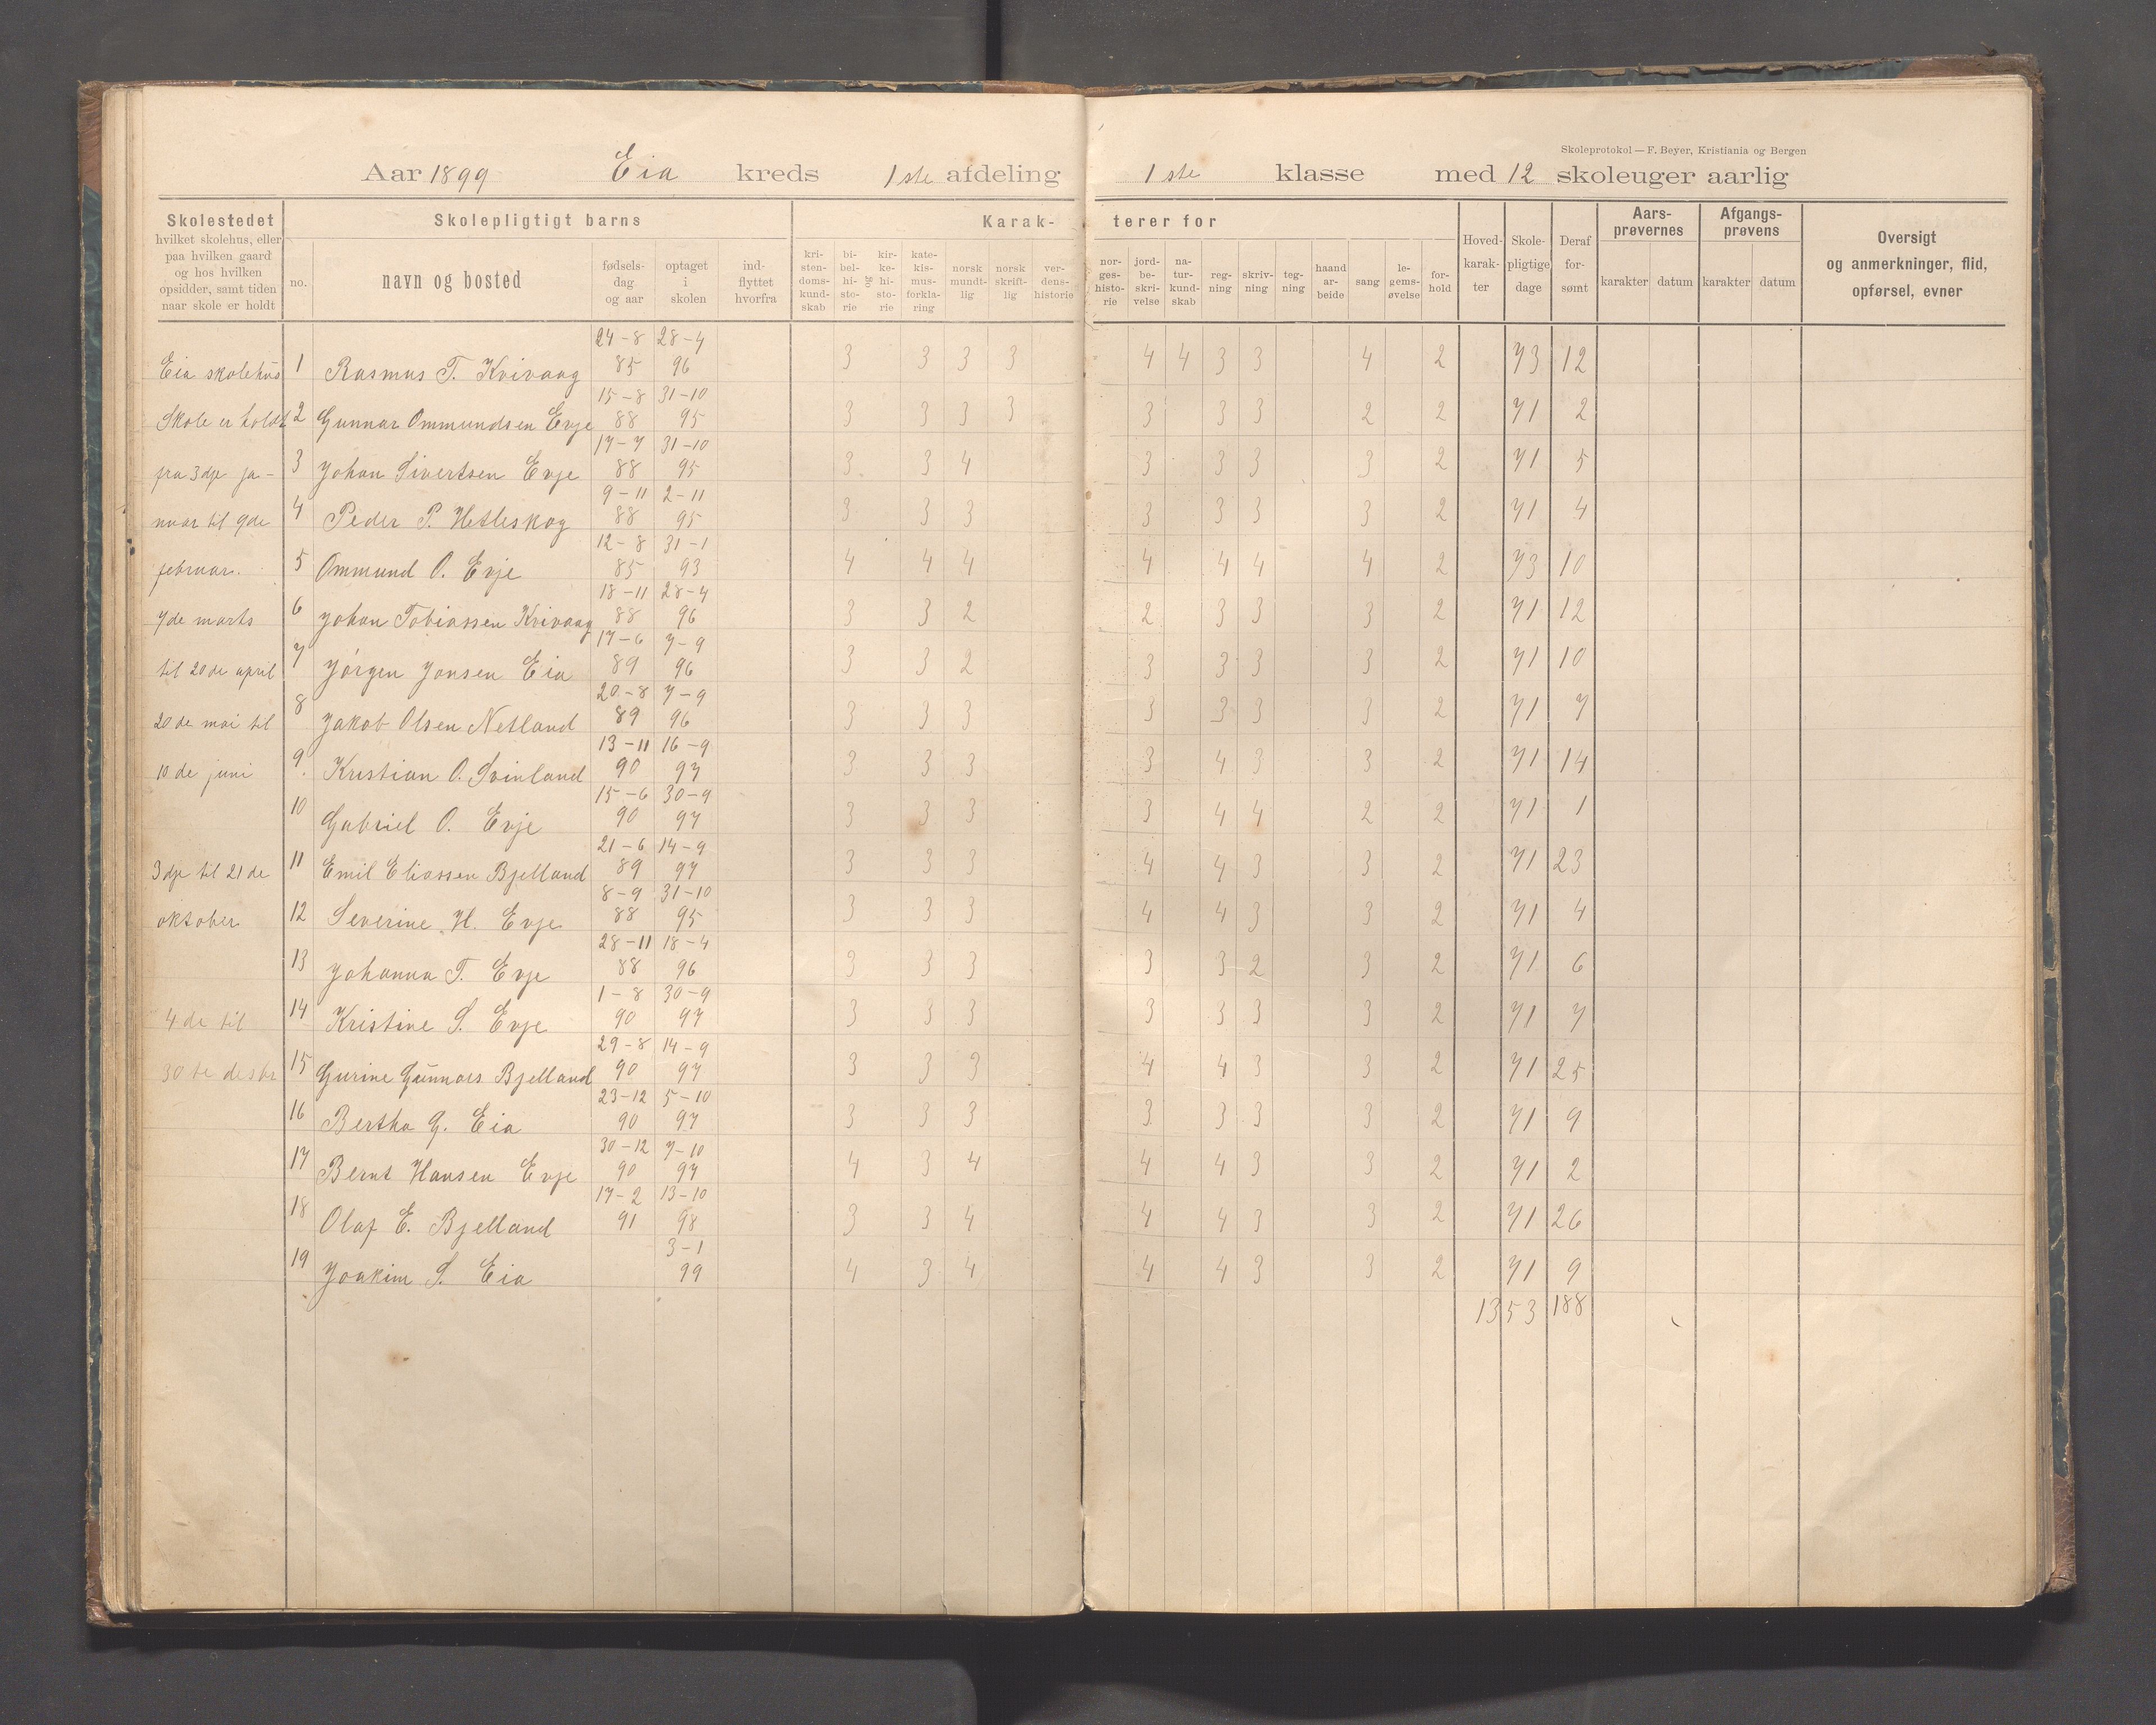 Skoleprotokol — F. Beyer, Kristiania og Bergen
Aar 1899 Eia kreds 1ste afdeling 1ste klasse med 12 skoleuger aarlig
Skolestedet
hvilket skolehus, eller
paa hvilken gaard
og hos hvilken
opsidder, samt tiden
naar skole er holdt
Skolepligtigt barns
no.
navn og bosted
fødsels-
dag
og aar
optaget
i
skolen
ind-
flyttet
hvorfra
Karak- terer for
kri-
sten-
doms-
kund-
skab
bi-
bel-
hi-
sto-
rie
og
kir-
ke-
hi-
sto-
rie
kate-
kis-
mus-
forkla-
ring
norsk
mundt-
lig
norsk
skrift-
lig
ver-
dens-
historie
nor-
ges-
histo-
rie
jord-
be-
skri-
velse
na-
tur-
kund-
skab
reg-
ning
skriv-
ning
teg-
ning
haand
ar-
beide
sang
le-
gems-
øvelse
for-
hold
Hoved-
karak-
ter
Skole-
pligtige
dage
Deraf
for-
sømt
Aars-
prøvernes
karakter datum
Afgangs-
prøvens
karakter datum
Oversigt
og anmerkninger, flid,
opførsel, evner
24-8 28-4
Eia skolehus 1 Rasmus T. Kvivaag 85 96 3 3 3 3 4 4 3 3 4 2 73 12
15-8 31-10
Skole er holdt 2 Gunnar Ommundsen Evje 88 95 3 3 3 3 3 3 3 2 2 71 2
17-7 31-10
fra 3dje ja- 3 Johan Sivertsen Evje 88 95 3 3 4 3 3 3 3 2 71 5
9-11 2-11
nuar til 9de 4 Peder P. Hetleskog 88 95 3 3 3 3 3 3 3 2 71 4
12-8 31-1
februar. 5 Ommund O. Evje 85 93 4 4 4 4 4 4 4 2 73 10
18-11 28-4
7de marts 6 Johan Tobiassen Kvivaag 88 96 3 3 2 2 3 3 3 2 71 12
17-6 7-9
til 20de april 7 Jörgen Jonsen Eia 89 96 3 3 2 3 3 3 3 2 71 10
20-8 7-9
20de mai til 8 Jakob Olsen Netland 89 96 3 3 3 3 3 3 3 2 71 7
13-11 16-9
10de juni 9. Kristian O. Svinland 90 97 3 3 3 3 4 3 3 2 71 14
15-6 30-9
10 Gabriel O. Evje 90 97 3 3 3 3 4 4 2 2 71 1
21-6 14-9
3dje til 21de 11 Emil Eliassen Bjelland 89 97 3 3 3 4 4 3 3 2 71 23
8-9 31-10
oktober 12 Severine H. Evje 88 95 3 3 3 4 4 3 3 2 71 4
28-11 18-4
13 Johanna T. Evje 88 96 3 3 3 3 3 2 3 2 71 6
1-8 30-9
4de til 14 Kristine S. Evje 90 97 3 3 3 3 3 3 3 2 71 7
29-8 14-9
30te desbr 15 Gurine Gunnars Bjelland 90 97 3 3 3 4 4 3 3 2 71 25
23-12 5-10
16 Bertha G. Eia 90 97 3 3 3 3 3 3 3 2 71 9
30-12 7-10
17 Bernt Hansen Evje 90 97 4 3 4 4 4 3 3 2 71 2
17-2 13-10
18 Olaf E. Bjelland 91 98 3 3 4 4 4 3 3 2 71 26
3-1
19 Joakim S. Eia 99 4 3 4 4 4 3 3 2 71 9
1353 188